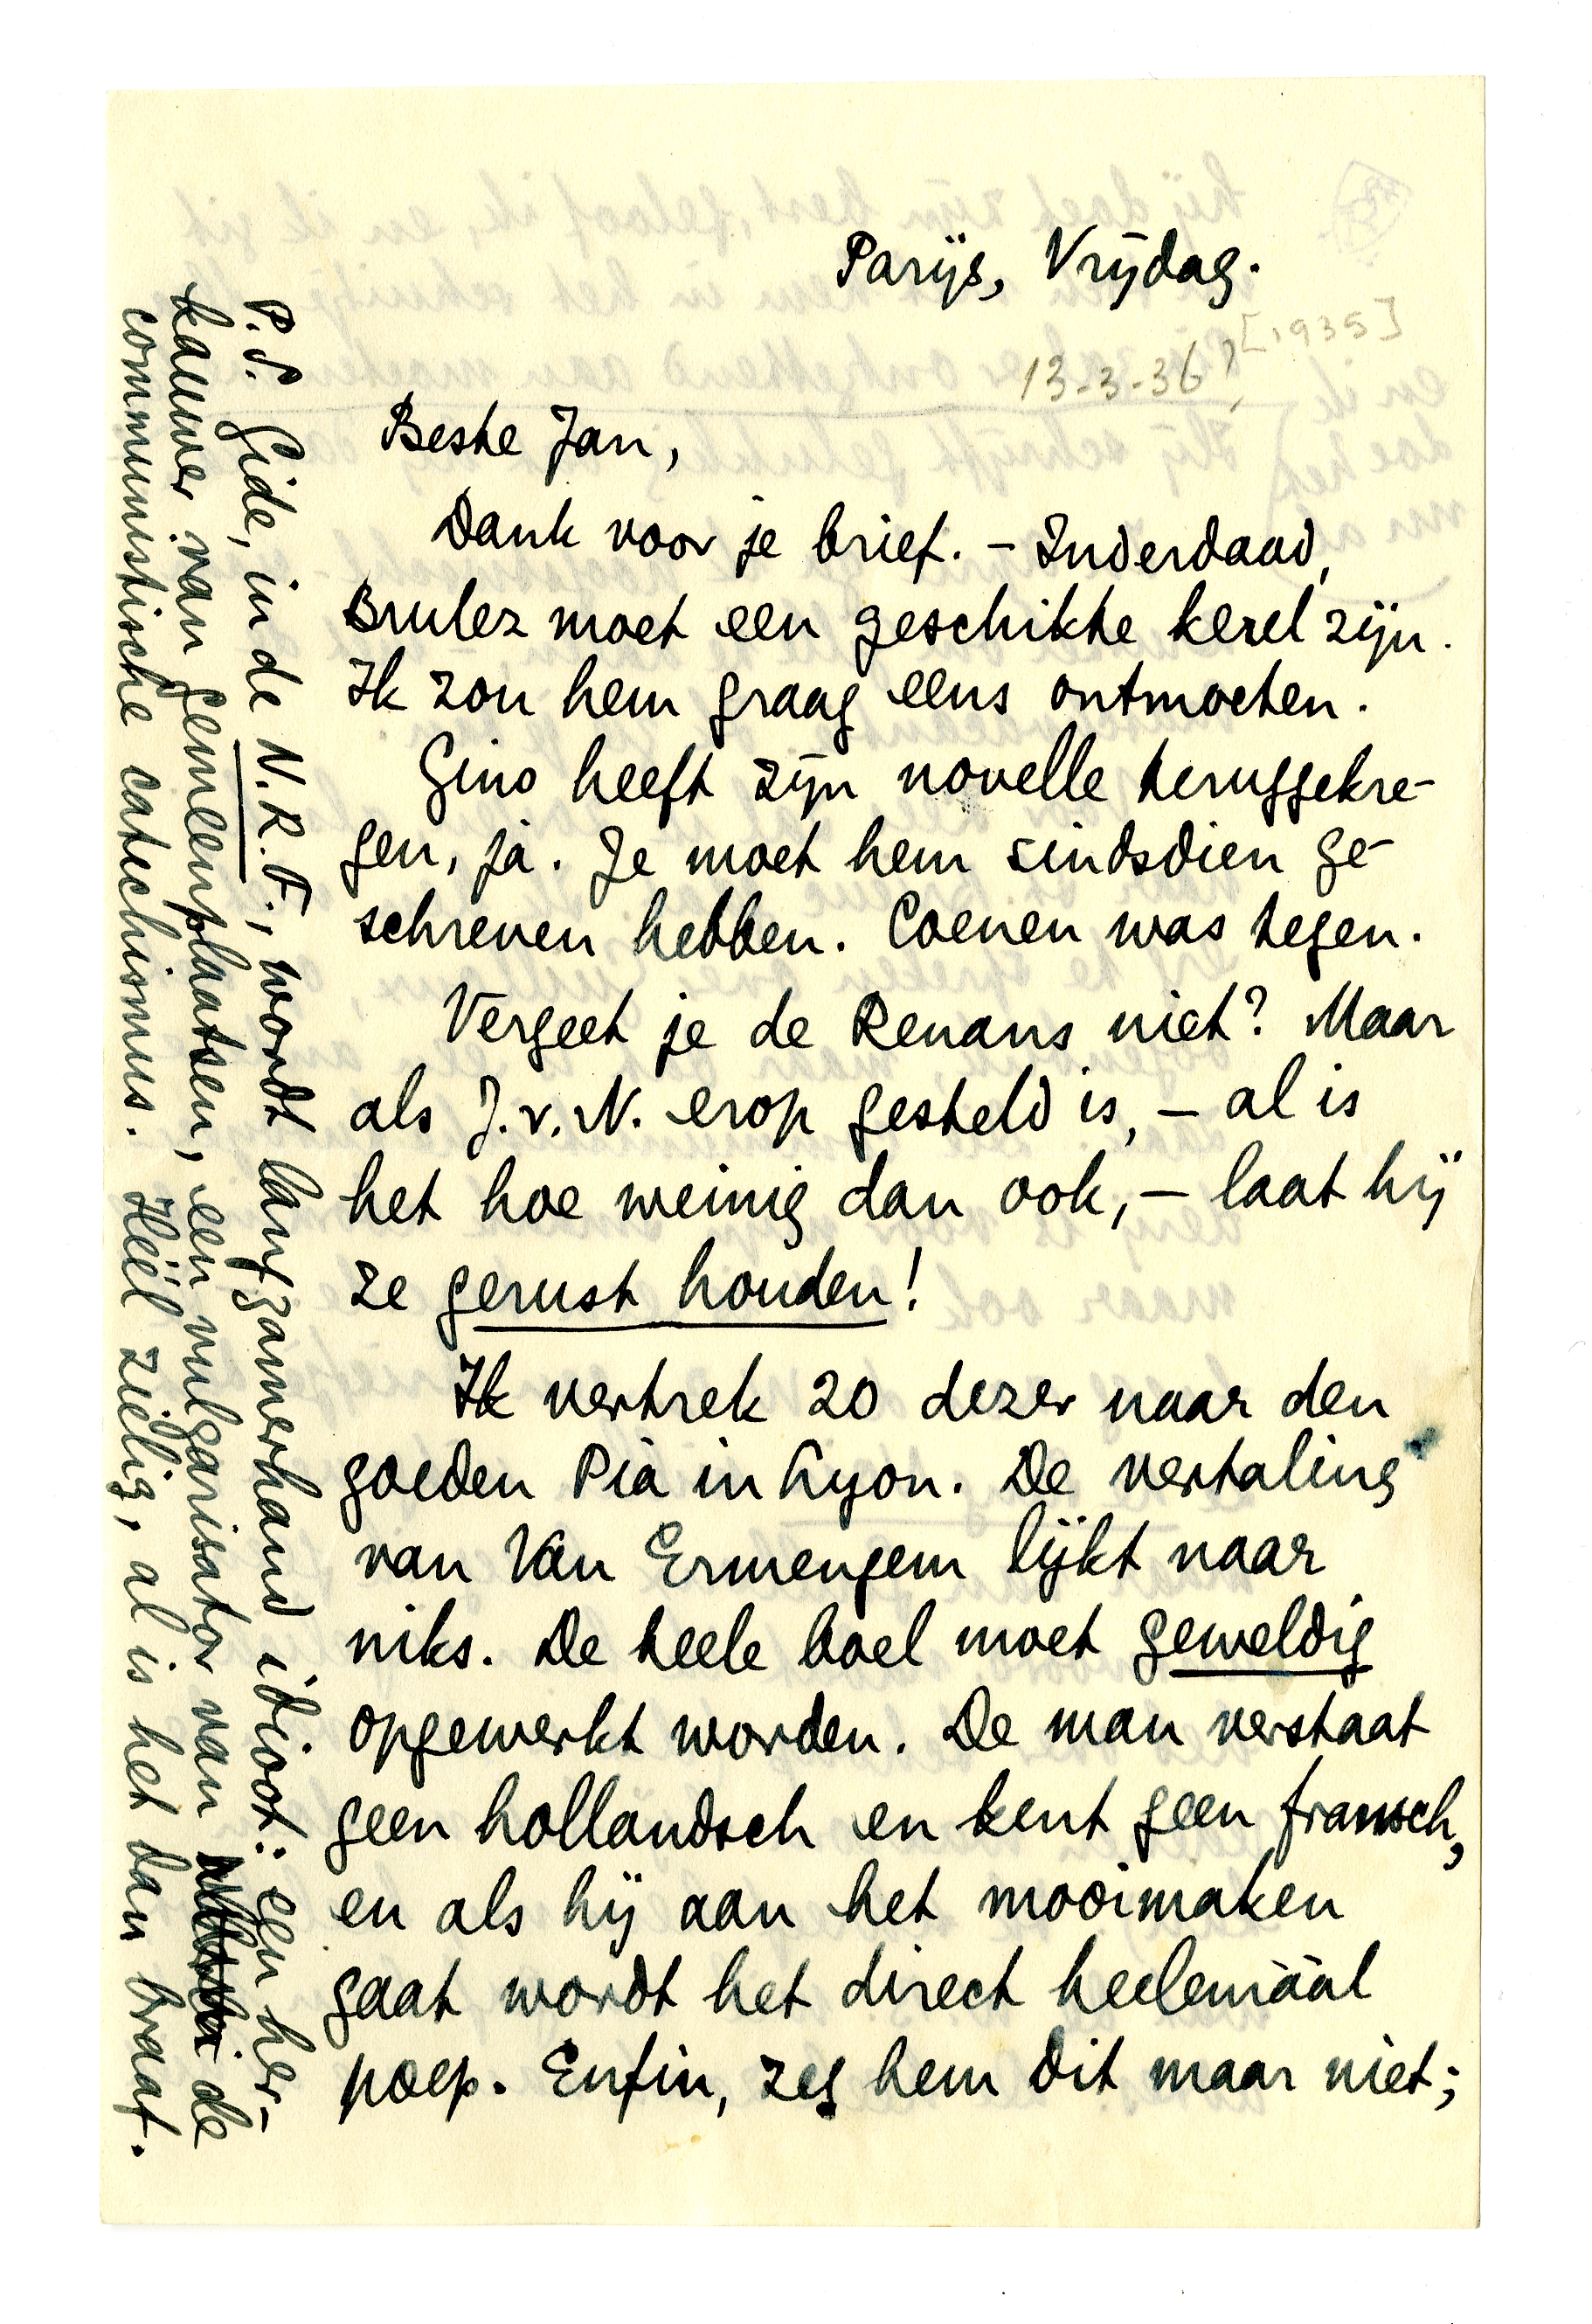 Parijs, Vrijdag.
[1935]
13-3-36?
Beste Jan,
Dank voor je brief. – Inderdaad,
Brulez moet een geschikte kerel zijn.
Ik zou hem graag eens ontmoeten.
Gino heeft zijn novelle teruggekre-
gen, ja. Je moet hem sindsdien ge-
schreven hebben. Coenen was tegen.
Vergeet je de Renans niet? Maar
als J.v.N. erop gesteld is, – al is
het hoe weinig dan ook, – laat hij
ze gerust houden!
Ik vertrek 20 dezer naar den
goeden Pia in Lyon. De vertaling
van Van Ermengem lijkt naar
niks. De heele boel moet geweldig
opgewerkt worden. De man verstaat
geen hollandsch en kent geen fransch,
en als hij aan het mooimaken
gaat wordt het direct heelemáál
poep. Enfin, zeg hem dit maar niet;
P.S. Gide, in de N.R.F., wordt langzamerhand idioot: een her-
kauwer van gemeenplaatsen, een vulgarisator van de
communistische catechismus. Héél zielig, al is het dan braaf.